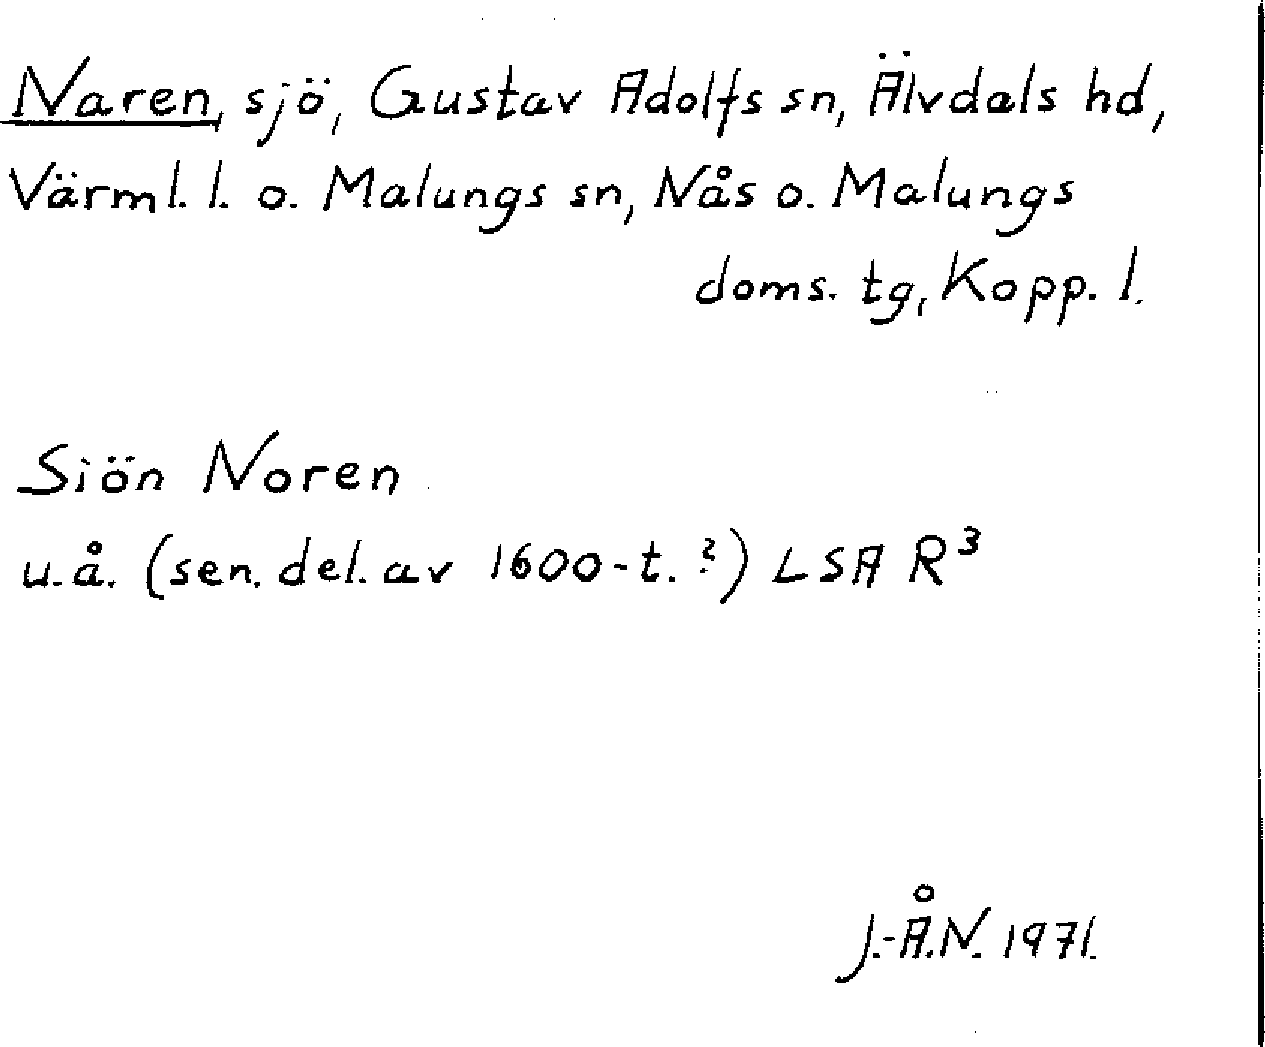 Naren, sjö, Gustav Adolfs sn, Älvdals hd,
Värml. l. o. Malungs sn, Nås o. Malungs
doms. tg, Kopp. l.
Siön Noren
u.å. (sen. del. av 1600-t. ?) LSA R³
J.-Å.N. 1971.